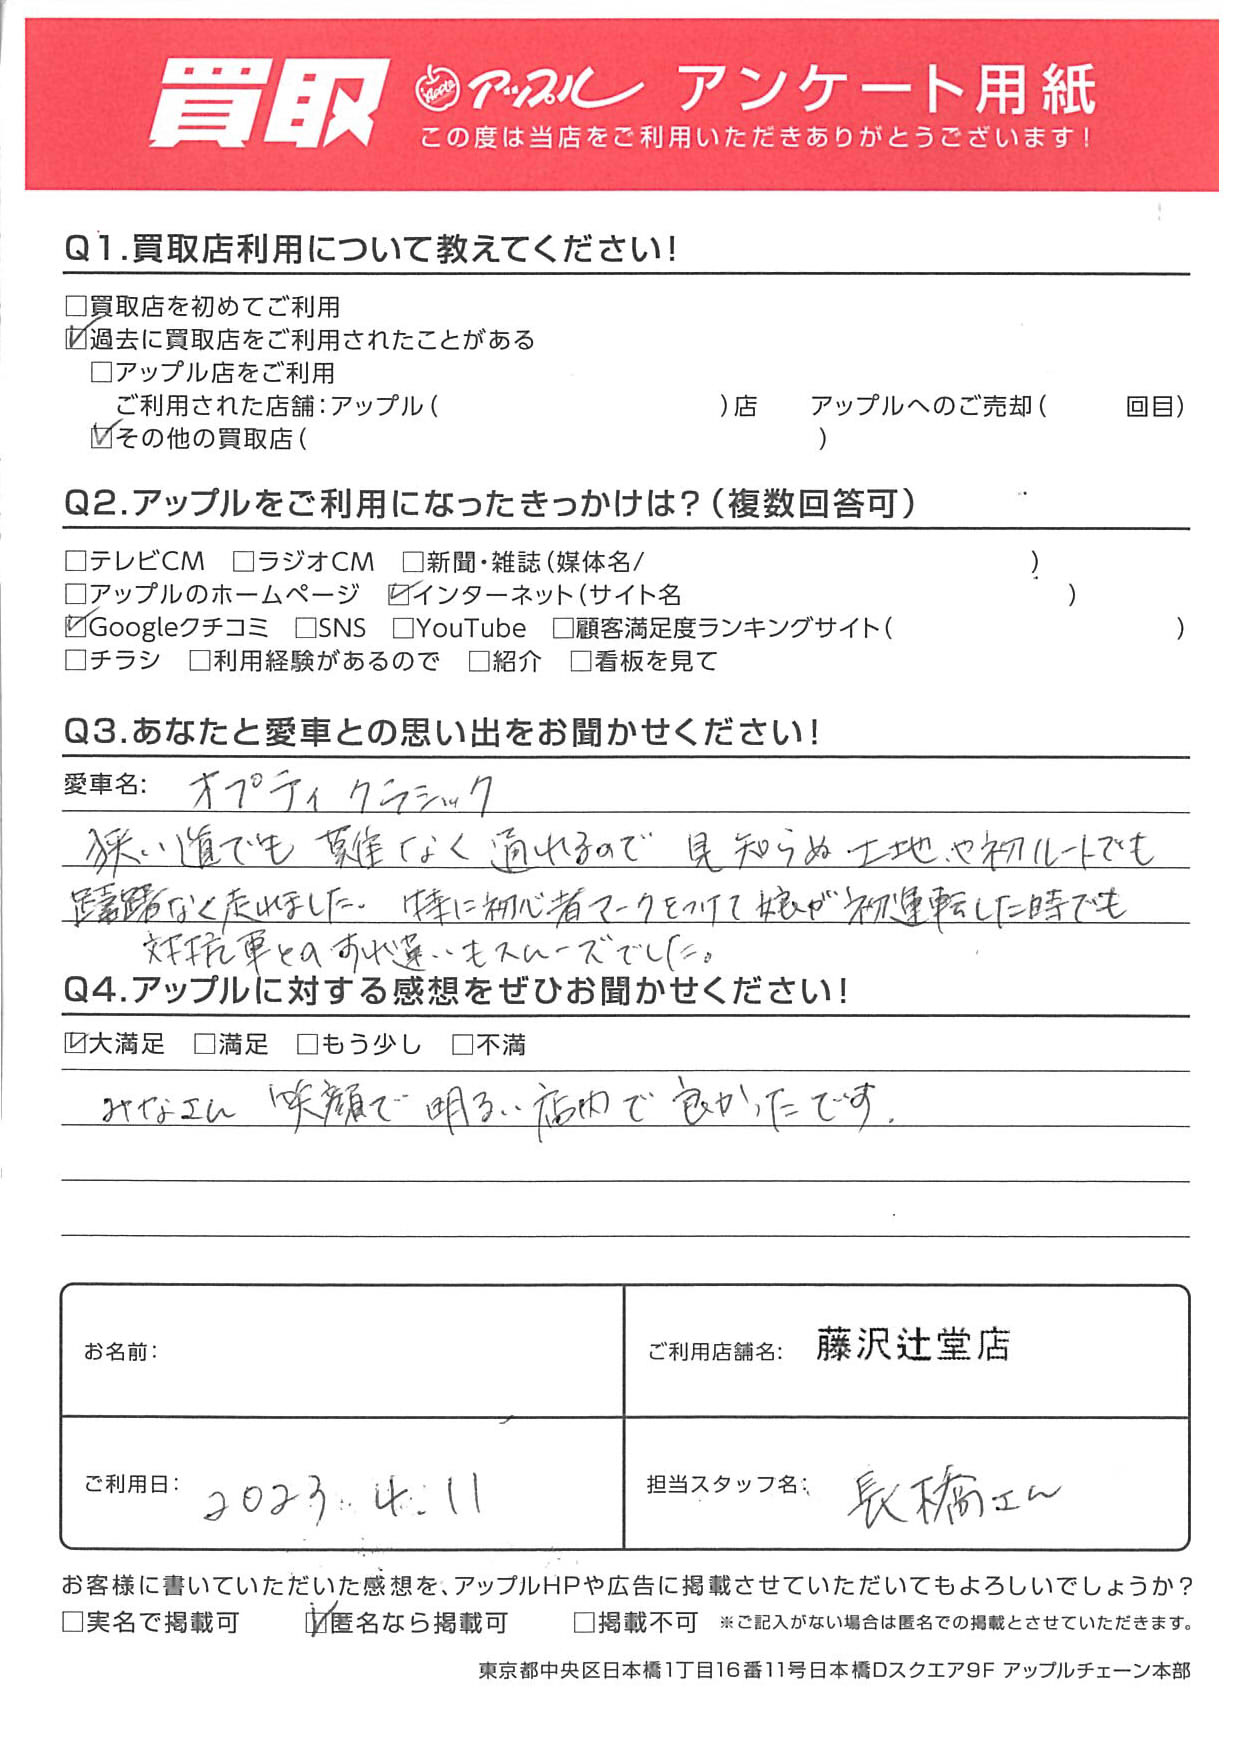 買取 Apple アップル アンケート用紙
この度は当店をご利用いただきありがとうございます!
Q1.買取店利用について教えてください!
□買取店を初めてご利用
☑過去に買取店をご利用されたことがある
□アップル店をご利用
ご利用された店舗:アップル( )店 アップルへのご売却( 回目)
☑その他の買取店( )
Q2.アップルをご利用になったきっかけは?(複数回答可)
□テレビCM □ラジオCM □新聞・雑誌(媒体名/ )
□アップルのホームページ ☑インターネット(サイト名 )
☑Googleクチコミ □SNS □YouTube □顧客満足度ランキングサイト( )
□チラシ □利用経験があるので □紹介 □看板を見て
Q3.あなたと愛車との思い出をお聞かせください!
愛車名: オプティクラシック
狭い道でも なく通れるので 見知らぬ土地や初ルートでも
躊躇なく走れました。特に初心者マークをつけて娘が初運転した時でも
対抗車とのすれ違いもスムーズでした。
Q4.アップルに対する感想をぜひお聞かせください!
☑大満足 □満足 □もう少し □不満
みなさん 笑顔で明るい店内で良かったです.
お名前:
ご利用店舗名: 藤沢辻堂店
ご利用日: 2023.4.11
担当スタッフ名: 長橋さん
お客様に書いていただいた感想を、アップルHPや広告に掲載させていただいてもよろしいでしょうか?
□実名で掲載可 ☑匿名なら掲載可 □掲載不可 ※ご記入がない場合は匿名での掲載とさせていただきます。
東京都中央区日本橋1丁目16番11号日本橋Dスクエア9F アップルチェーン本部